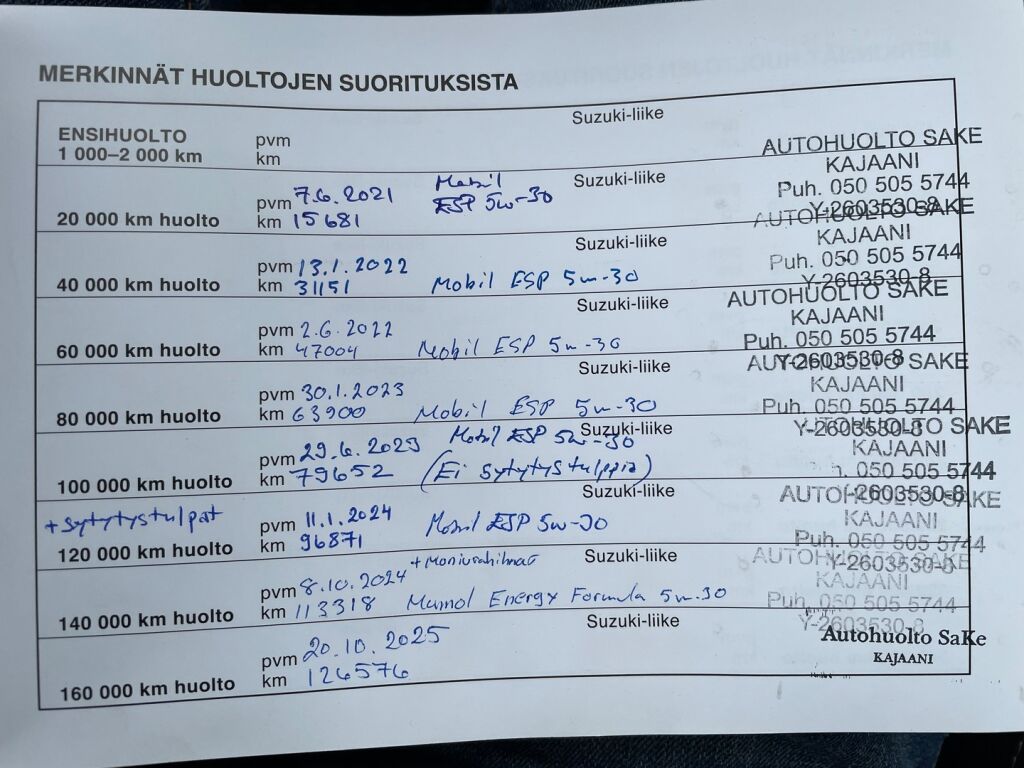 MERKINNÄT HUOLTOJEN SUORITUKSISTA
ENSIHUOLTO
1 000–2 000 km
pvm
km
Suzuki-liike
20 000 km huolto
pvm 7.6.2021
km 15681
Mobil
ESP 5w-30
Suzuki-liike
AUTOHUOLTO SAKE
KAJAANI
Puh. 050 505 5744
Y-2603530-8
40 000 km huolto
pvm 13.1.2022
km 31151
Mobil ESP 5w-30
Suzuki-liike
AUTOHUOLTO SAKE
KAJAANI
Puh. 050 505 5744
Y-2603530-8
60 000 km huolto
pvm 2.6.2022
km 47004
Mobil ESP 5w-30
Suzuki-liike
AUTOHUOLTO SAKE
KAJAANI
Puh. 050 505 5744
Y-2603530-8
80 000 km huolto
pvm 30.1.2023
km 63900
Mobil ESP 5w-30
Suzuki-liike
AUTOHUOLTO SAKE
KAJAANI
Puh. 050 505 5744
Y-2603530-8
100 000 km huolto
pvm 29.6.2023
km 79652
Mobil ESP 5w-30
(Ei sytytystulppia)
Suzuki-liike
UTOHUOLTO SAKE
KAJAANI
. 050 505 5744
Y-2603530-8
+sytytystulpat
120 000 km huolto
pvm 11.1.2024
km 96871
Mobil ESP 5w-30
Suzuki-liike
AUTOHUOLTO SAKE
KAJAANI
Puh. 050 505 5744
Y-2603530-8
140 000 km huolto
pvm 8.10.2024
km 113318
+Moniurahihnat
Mannol Energy Formula 5w-30
Suzuki-liike
AUTOHUOLTO SAKE
KAJAANI
Puh. 050 505 5744
Y-2603530-8
160 000 km huolto
pvm 20.10.2025
km 126576
Suzuki-liike
Autohuolto SaKe
KAJAANI